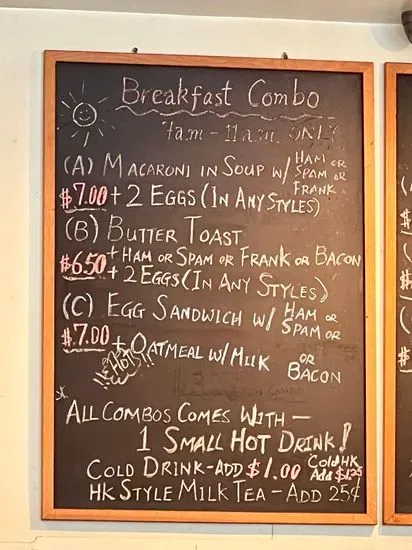 Breakfast Combo
7am - 11am ONLY
(A) MACARONI IN SOUP W/ HAM OR
SPAM OR
FRANK
$7.00 + 2 EGGS (IN ANY STYLES)
(B) BUTTER TOAST
$6.50 + HAM OR SPAM OR FRANK OR BACON
+ 2 EGGS (IN ANY STYLES)
(C) EGG SANDWICH W/ HAM OR
SPAM OR
BACON
$7.00 + OATMEAL W/ MILK OR
HOT
ALL COMBOS COMES WITH -
1 SMALL HOT DRINK!
COLD DRINK - ADD $1.00 Cold HK
Add $1.25
HK STYLE MILK TEA - ADD 25¢